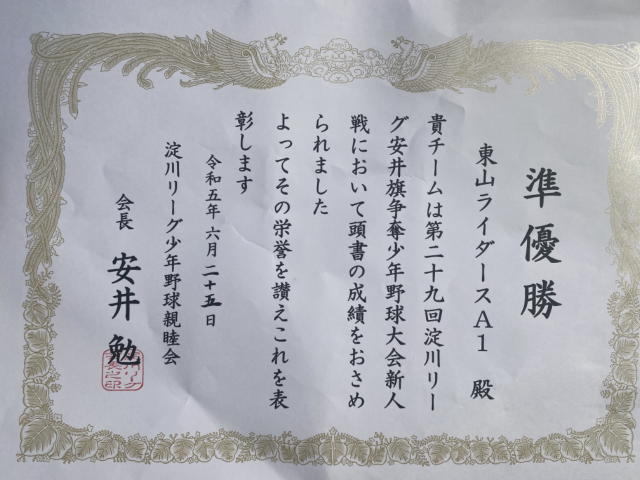 準優勝
東山ライダースA1 殿
貴チームは第二十九回淀川リー
グ安井旗争奪少年野球大会新人
戦において頭書の成績をおさめ
られました
よってその栄誉を讃えこれを表
彰します
令和五年六月二十五日
淀川リーグ少年野球親睦会
会長 安井 勉